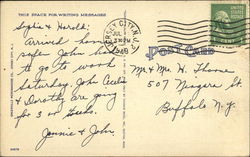 THIS SPACE FOR WRITING MESSAGES
POST CARD
Sylvia & Harold;
Arrived home
safe. John has
to go to work
Saturday. John Cecelia
& Dorothy are going
for 3 weeks.
Jennie & John
JERSEY CITY, N.J.
JUL
3:30 PM
1948
Mr & Mrs H. Thorne
507 Niagara St
Buffalo N.Y.